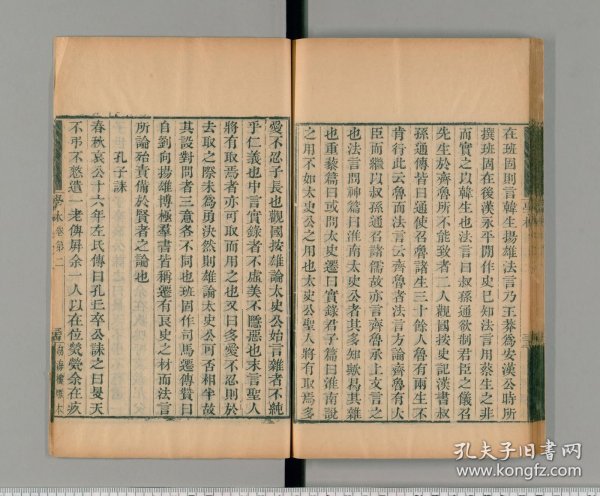 在班固則言韓生揚雄法言乃王莽為安漢公時所
撰班固在後漢永平間作史已知法言用蔡生之非
而實之以韓生也法言曰叔孫通欲制君臣之儀召
先生於齊魯所不能致者二人觀國按史記漢書叔
孫通傳皆曰通使召魯諸生三十餘人魯有兩生不
肯行此云魯而法言云齊魯者法言方論齊魯有大
臣而繼以叔孫通召諸儒故亦言齊魯承上文言之
也法言問神篇曰淮南太史公者其多知歟曷其雜
也重藜篇曰或問太史遷曰實錄君子篇曰淮南說
之用不如太史公之用也太史公聖人將有取焉多
愛不忍子長也觀國按雄論太史公始言雜者不純
乎仁義也中言實錄者不虛美不隱惡也末言聖人
將有取焉者亦可取而用之也又曰多愛不忍則於
去取之際未為勇決然則雄論太史公可否相半故
其設對問者三意各不同也班固作司馬遷傳贊曰
自劉向揚雄博極羣書皆稱遷有良史之材而法言
所論殆責備於賢者之論也
孔子誄
春秋哀公十六年左氏傳曰孔丘卒公誄之曰旻天
不弔不憖遺一老俾屏余一人以在位煢煢余在疚
卷第二
孔夫子旧书网
www.kongfz.com